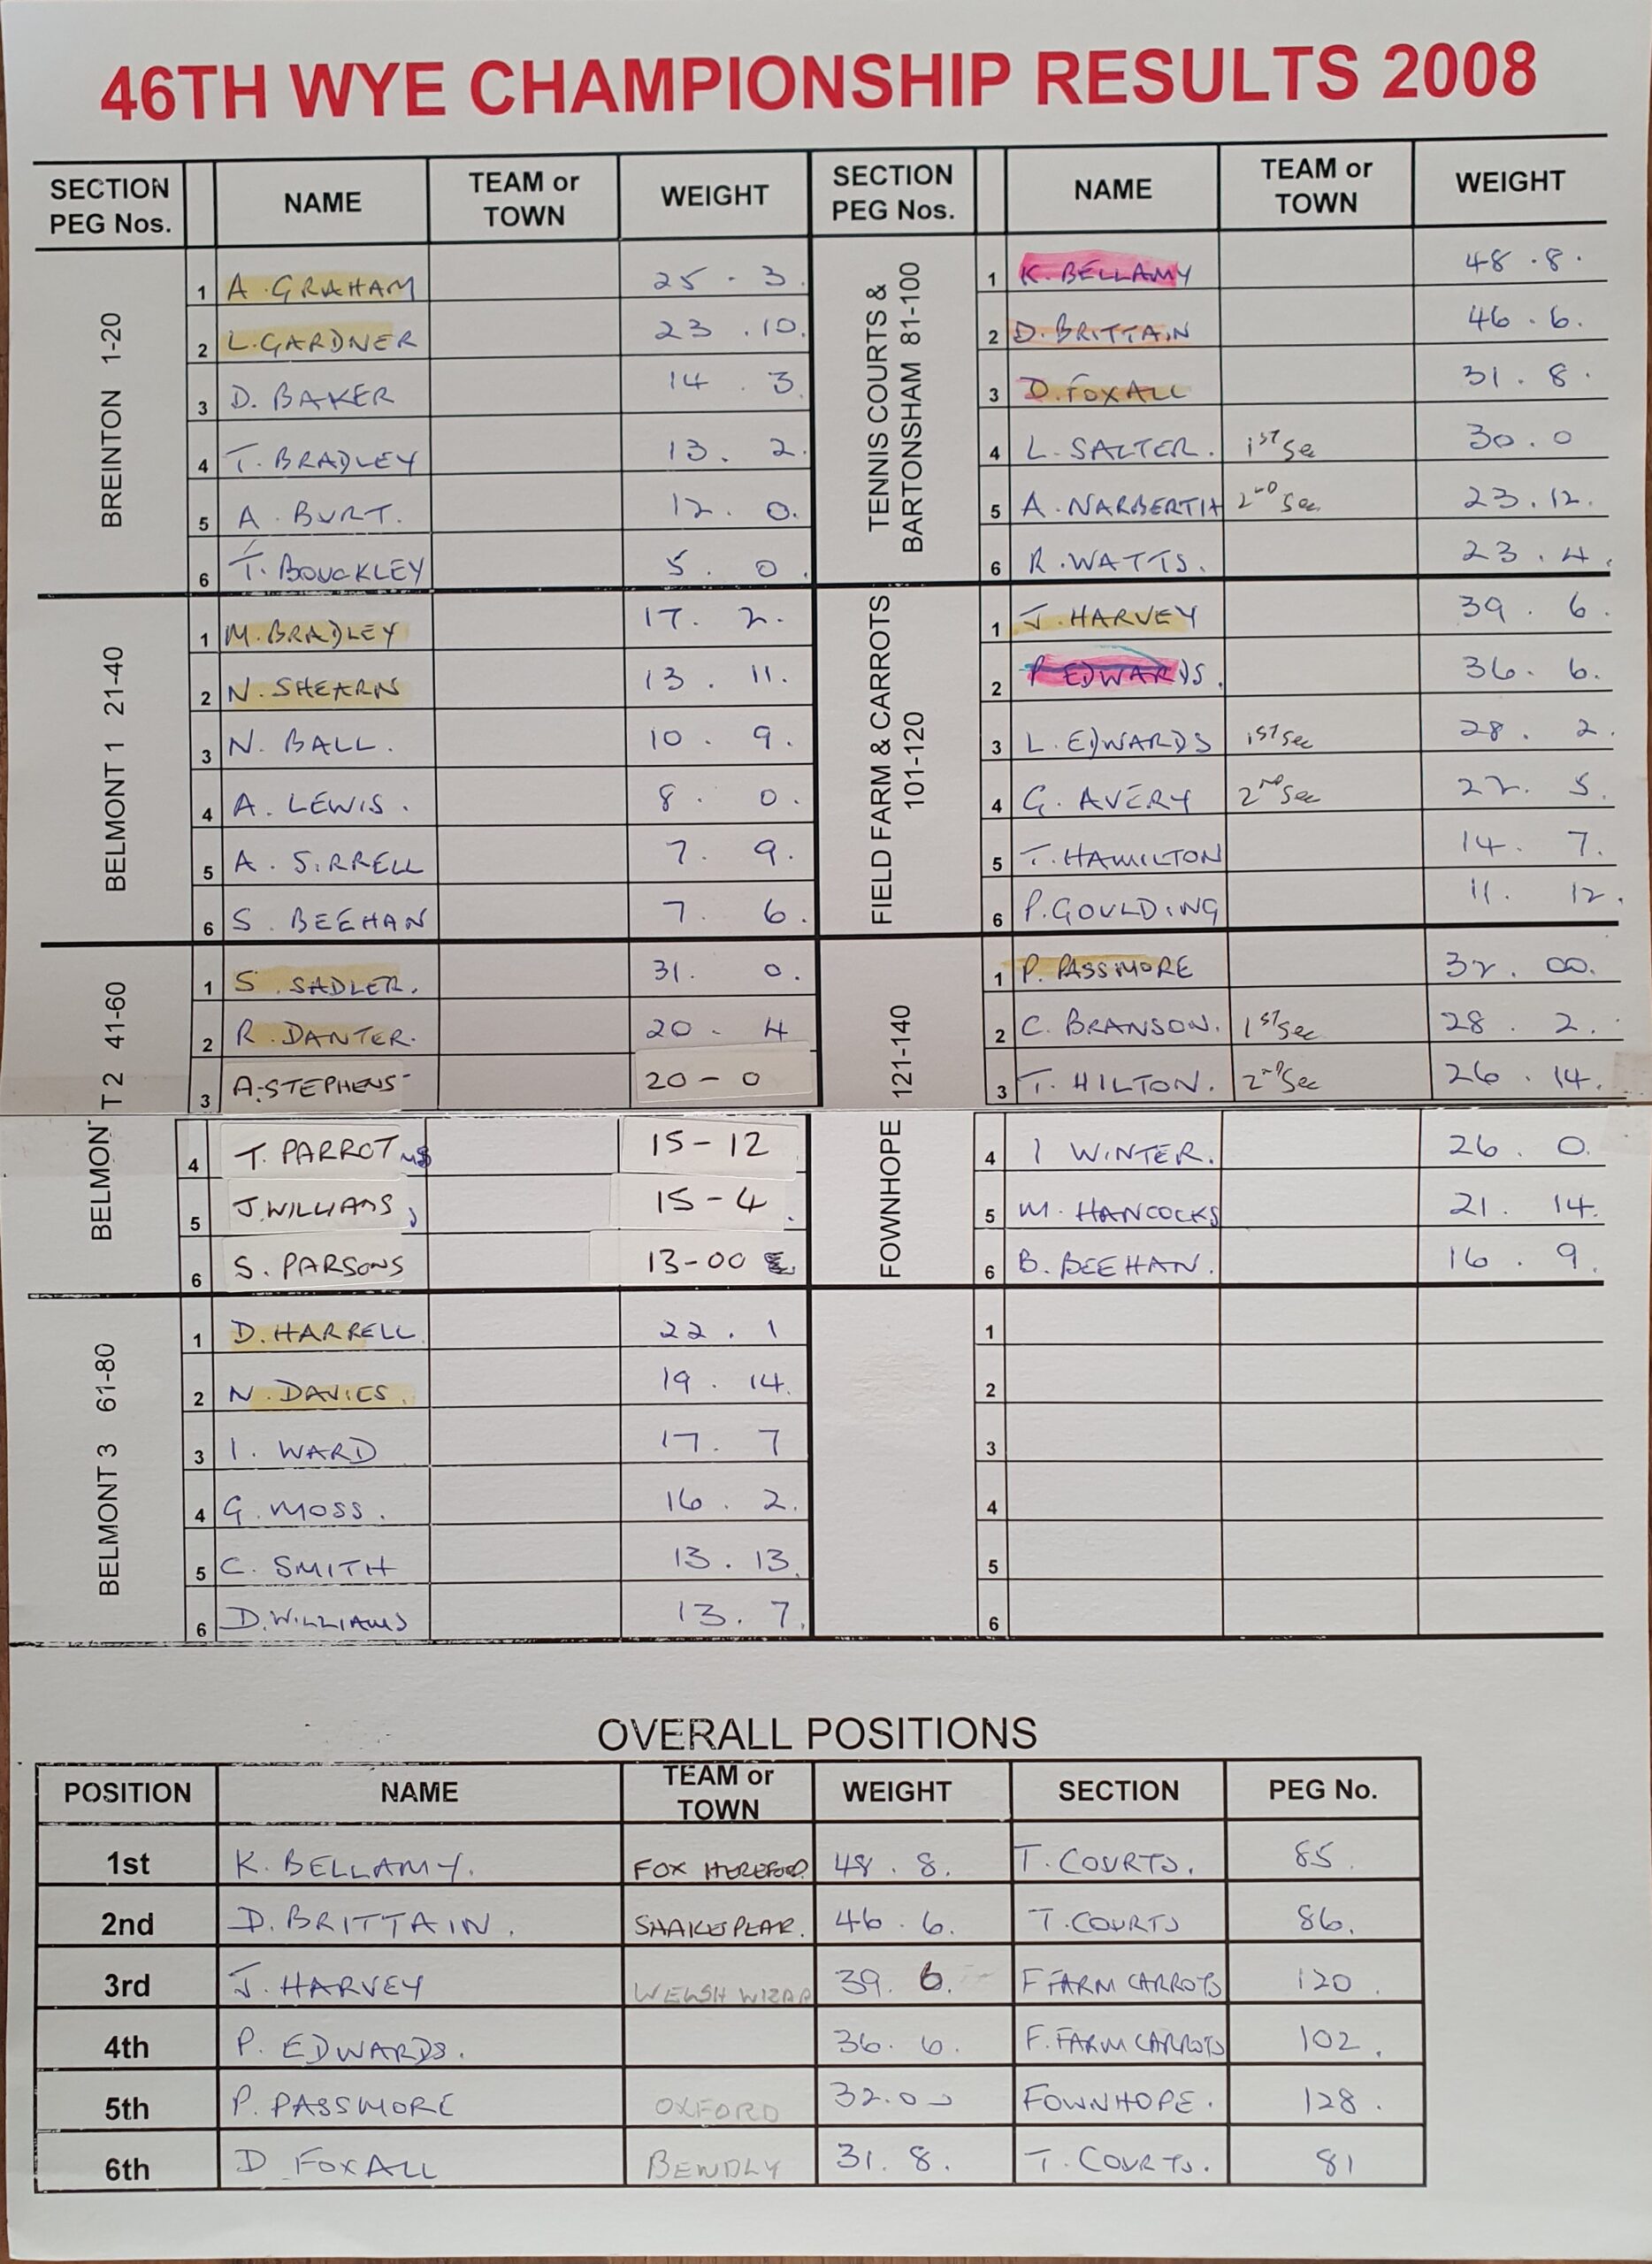 46TH WYE CHAMPIONSHIP RESULTS 2008
SECTION PEG Nos. NAME TEAM or TOWN WEIGHT
BREINTON 1-20
1 A. GRAHAM 25 - 3.
2 L. GARDNER 23 .10.
3 D. BAKER 14 . 3
4 T. BRADLEY 13. 2.
5 A. BURT. 12. 0.
6 T. BOUCKLEY 5. 0.
BELMONT 1 21-40
1 M. BRADLEY 17. 2.
2 N. SHEARN 13. 11.
3 N. BALL. 10. 9.
4 A. LEWIS. 8. 0.
5 A. SIRRELL 7. 9.
6 S. BEEHAN 7. 6.
BELMONT 2 41-60
1 S. SADLER. 31. 0.
2 R. DANTER. 20 - 4
3 A. STEPHENS 20 - 0
4 T. PARROT 15 - 12
5 J. WILLIAMS 15 - 4
6 S. PARSONS 13-00
BELMONT 3 61-80
1 D. HARRELL 22. 1
2 N. DAVIES. 19. 14.
3 I. WARD 17. 7
4 G. MOSS. 16. 2.
5 C. SMITH 13. 13.
6 D. WILLIAMS 13. 7.
SECTION PEG Nos. NAME TEAM or TOWN WEIGHT
TENNIS COURTS & BARTONSHAM 81-100
1 K. BELLAMY 48.8.
2 D. BRITTAIN 46.6.
3 D. FOXALL 31.8.
4 L. SALTER. 1ST Sec 30.0
5 A. NARBERTH 2ND Sec 23.12.
6 R. WATTS. 23.4.
FIELD FARM & CARROTS 101-120
1 J. HARVEY 39. 6.
2 P EDWARDS. 36. 6.
3 L. EDWARDS 1ST Sec 28. 2.
4 G. AVERY 2nd Sec 22. 5.
5 T. HAMILTON 14. 7.
6 P. GOULDING 11. 12.
FOWNHOPE 121-140
1 P. PASSMORE 32. 00.
2 C. BRANSON. 1ST Sec 28. 2.
3 T. HILTON. 2ND Sec 26. 14.
4 I WINTER. 26. 0.
5 M. HANCOCKS 21. 14.
6 B. BEEHAN. 16. 9.
1
2
3
4
5
6
OVERALL POSITIONS
POSITION NAME TEAM or TOWN WEIGHT SECTION PEG No.
1st K. BELLAMY. FOX HEREFORD 48. 8. T. COURTS. 85.
2nd D. BRITTAIN. SHAKESPEAR. 46. 6. T. COURTS 86.
3rd J. HARVEY WELSH WIZAR 39. 6. F FARM CARROTS 120.
4th P. EDWARDS. 36. 6. F. FARM CARROTS 102.
5th P. PASSMORE OXFORD 32.00 FOWNHOPE. 128.
6th D FOXALL BEWDLY 31. 8. T. COURTS. 81